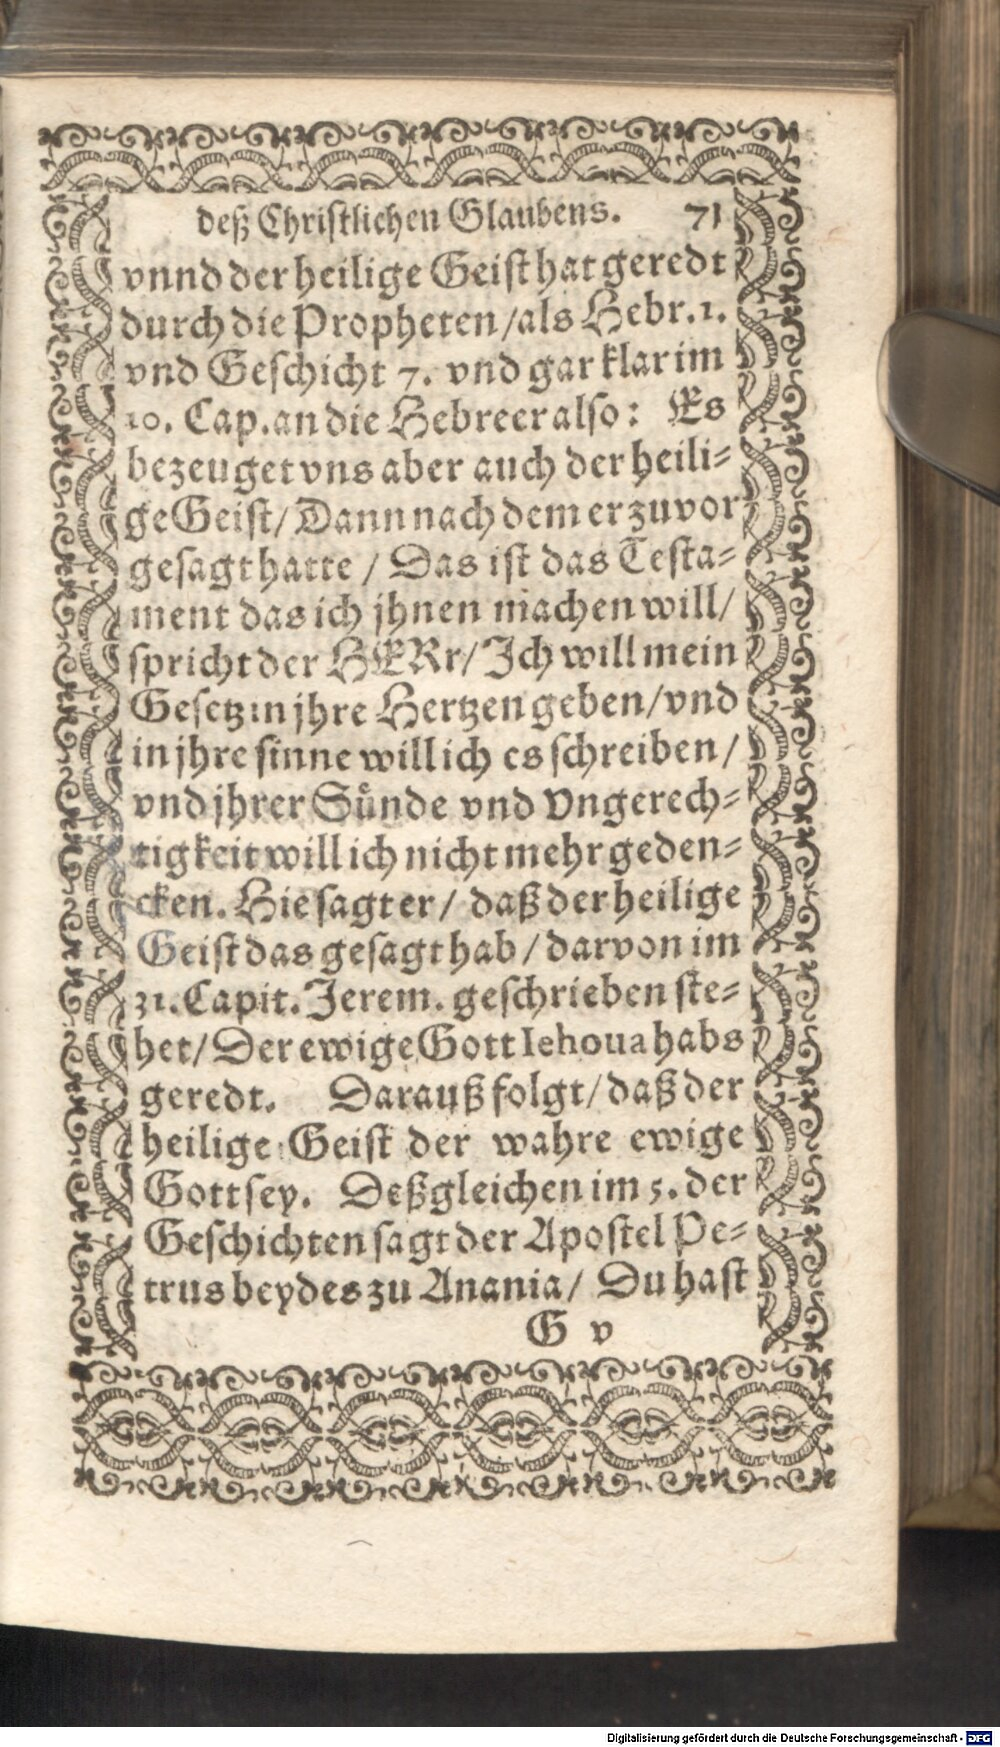 deß Christlichen Glaubens. 71
vnnd der heilige Geist hat geredt
durch die Propheten / als Hebr. 1.
vnd Geschicht 7. vnd gar klar im
10. Cap. an die Hebreer also: Es
bezeuget vns aber auch der heili-
ge Geist / Dann nach dem er zuvor
gesagt hatte / Das ist das Testa-
ment das ich jhnen machen will /
spricht der HERr / Ich will mein
Gesetz in jhre Hertzen geben / vnd
in jhre sinne will ich es schreiben /
vnd jhrer Sünde vnd Vngerech-
tigkeit will ich nicht mehr geden-
cken. Hie sagt er / daß der heilige
Geist das gesagt hab / darvon im
31. Capit. Jerem. geschrieben ste-
het / Der ewige Gott Iehoua habs
geredt. Darauß folgt / daß der
heilige Geist der wahre ewige
Gott sey. Deßgleichen im 5. der
Geschichten sagt der Apostel Pe-
trus beydes zu Anania / Du hast
G v
Digitalisierung gefördert durch die Deutsche Forschungsgemeinschaft - DFG